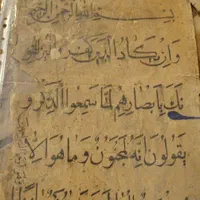 بسم الله الرحمن الرحيم
وان يكاد الذين كفروا
نك بابصارهم لما سمعوا الذكر و
يقولون انه لمجنون وما هو الا